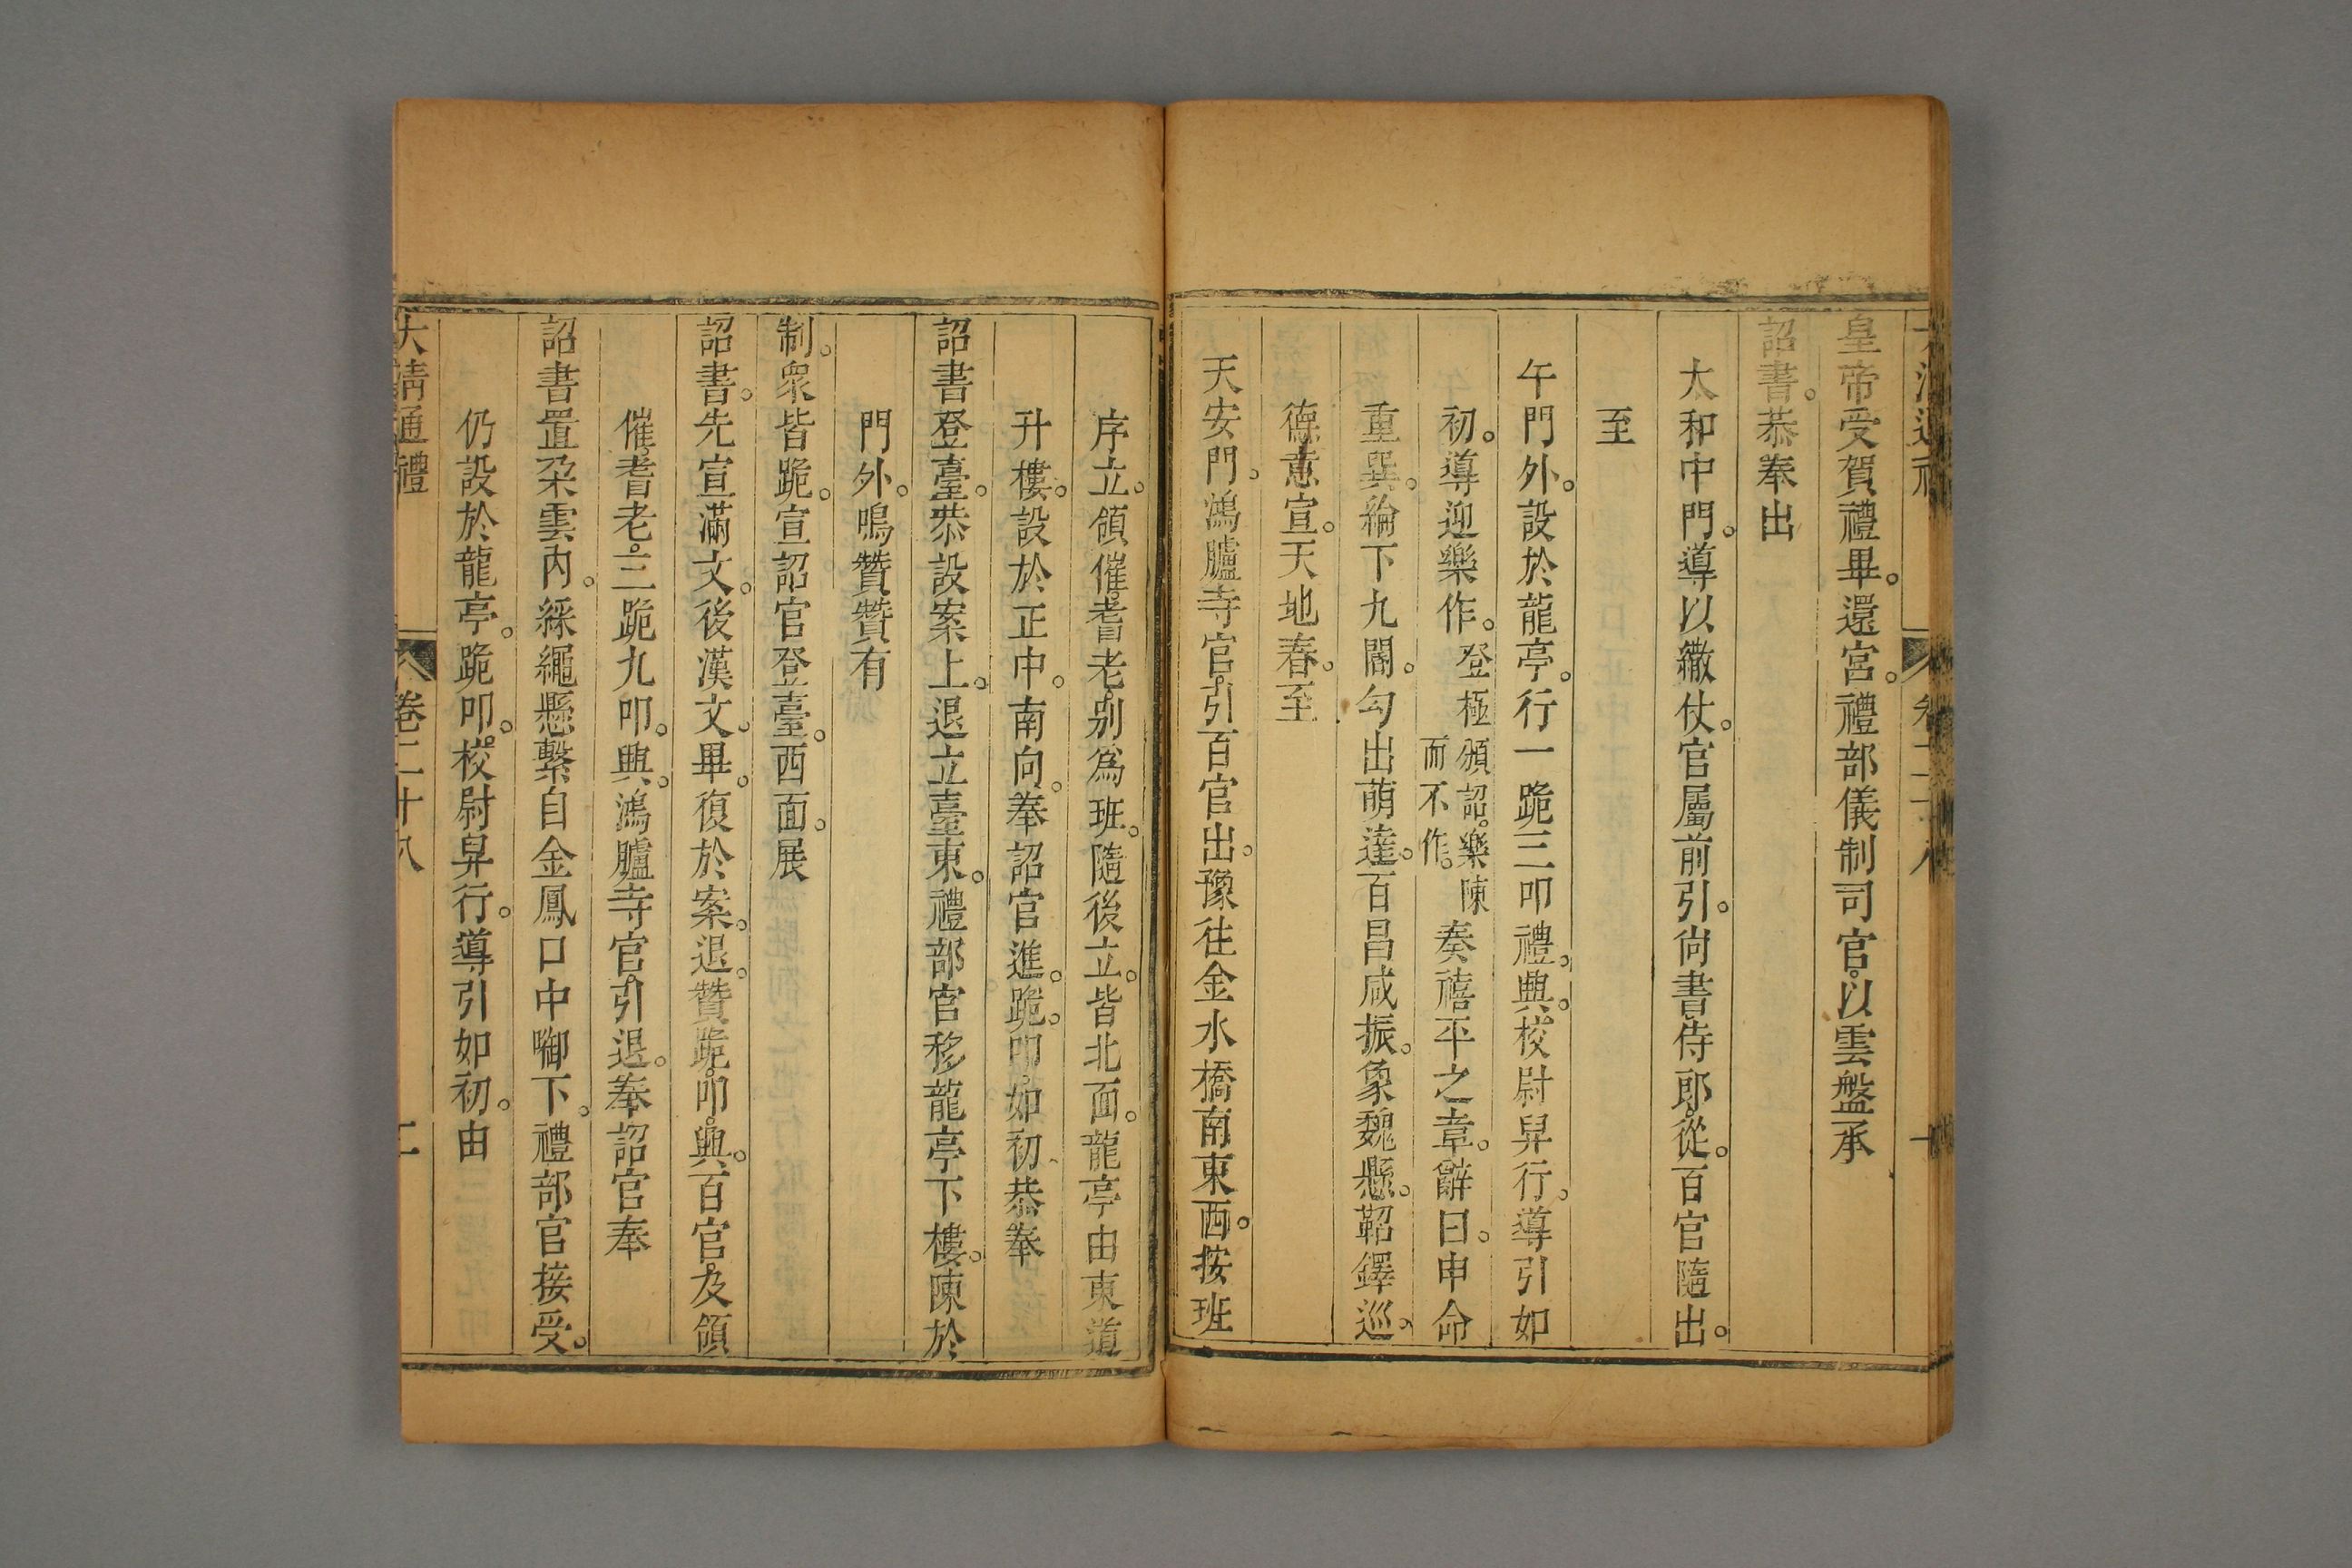 皇帝受賀禮畢。還宮。禮部儀制司官。以雲盤承
詔書。恭奉出
太和中門。導以繖仗。官屬前引。尙書侍郎。從。百官隨出。
至
午門外。設於龍亭。行一跪三叩禮。興。校尉舁行。導引如
初。導迎樂作。登極頒詔。樂陳而不作。奏禧平之章。辭曰。申命
重巽。綸下九閽。勾出萌達。百昌咸振。象魏懸。鞀鐸巡。
德意宣。天地春。至
天安門。鴻臚寺官。引百官出。豫往金水橋南東西。按班
序立。領催。耆老。別爲班。隨後立。皆北面。龍亭由東道
升樓。設於正中。南向。奉詔官進。跪。叩。如初。恭奉
詔書登臺。恭設案上。退立臺東。禮部官移龍亭下樓。陳於
門外。鳴贊贊有
制。衆皆跪。宣詔官登臺。西面。展
詔書。先宣滿文。後漢文。畢。復於案。退。贊跪。叩。興。百官。及領
催。耆老。三跪九叩。興。鴻臚寺官。引退。奉詔官奉
詔書置朶雲內。綵繩懸繫自金鳳口中啣下。禮部官接受。
仍設於龍亭。跪叩。校尉舁行。導引如初。由
大清通禮 卷二十八 二